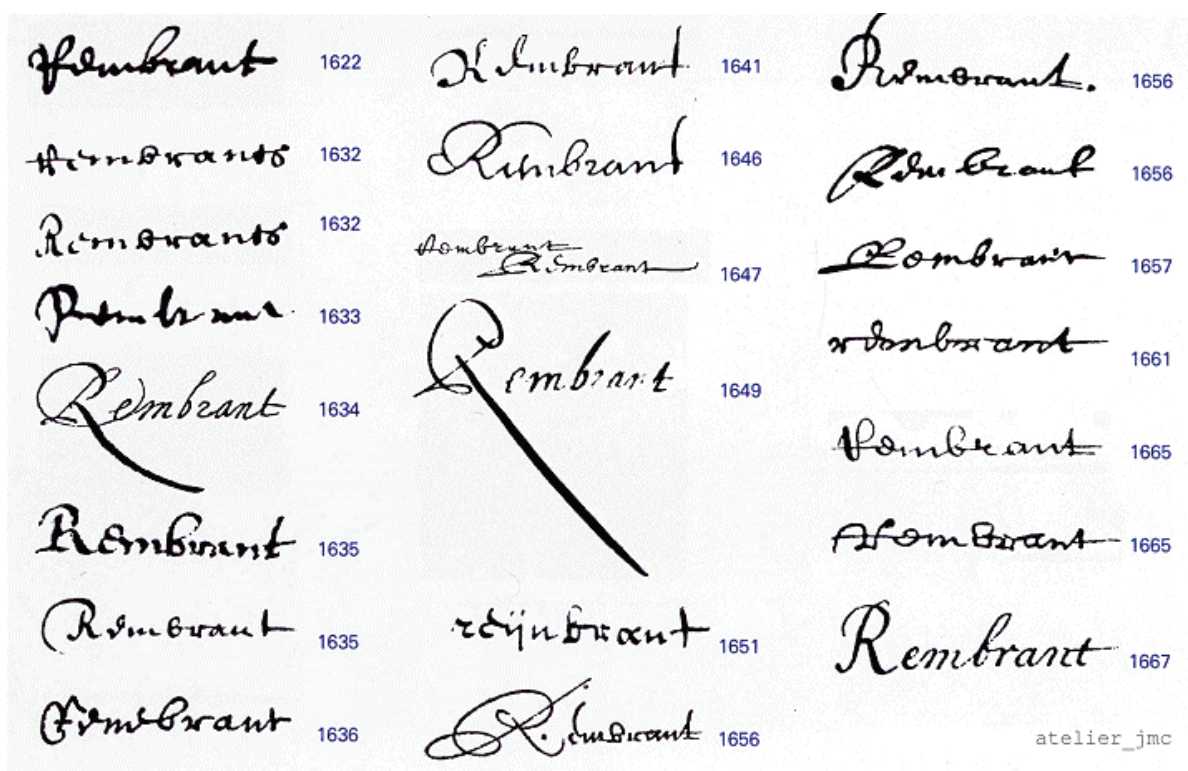 Rembrant 1622
Rembrants 1632
Rembrants 1632
Rembrant 1633
Rembrant 1634
Rembrant 1635
Rembrant 1635
Rembrant 1636
Rembrant 1641
Rembrant 1646
Rembrant
Rembrant 1647
Rembrant 1649
reijnbrant 1651
Rembrant 1656
Rembrant. 1656
Rembrant 1656
Rembrant 1657
rembrant 1661
Rembrant 1665
Rembrant 1665
Rembrant 1667
atelier_jmc